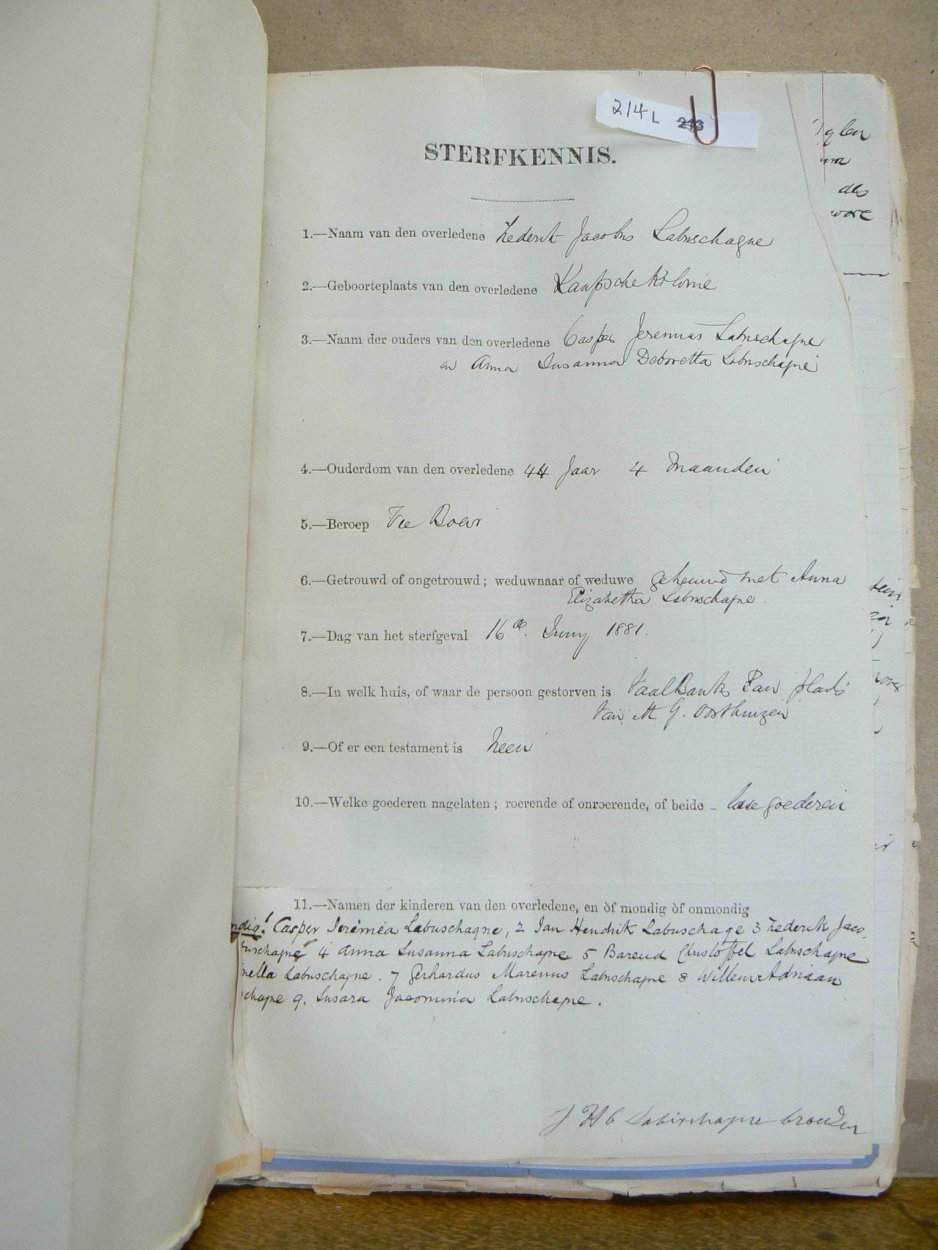 214 L 213
STERFKENNIS.
1.—Naam van den overledene Frederik Jacobus Labuschagne
2.—Geboorteplaats van den overledene Kaapsche Kolonie
3.—Naam der ouders van den overledene Casper Jeremias Labuschagne
en Anna Susanna Deboretta Labuschagne
4.—Ouderdom van den overledene 44 Jaar 4 Maanden
5.—Beroep Vee Boer
6.—Getrouwd of ongetrouwd; weduwnaar of weduwe gehuwd met Anna
Elizabetha Labuschagne.
7.—Dag van het sterfgeval 16de Juny 1881.
8.—In welk huis, of waar de persoon gestorven is Vaalbank Pan plaats
van M G. Oosthuizen
9.—Of er een testament is Neen
10.—Welke goederen nagelaten; roerende of onroerende, of beide - losse goederen
11.—Namen der kinderen van den overledene, en òf mondig òf onmondig
ndig! Casper Jeremia Labuschagne, 2 Jan Hendrik Labuschage 3 Frederik Jaco
buschagne 4 Anna Susanna Labuschagne 5 Barend Christoffel Labuschagne
nella Labuschagne. 7 Gerhardus Marenus Labuschagne 8 Willem Adriaan
schagne 9. Susara Jacomina Labuschagne.
J H C Labuschagne broeder